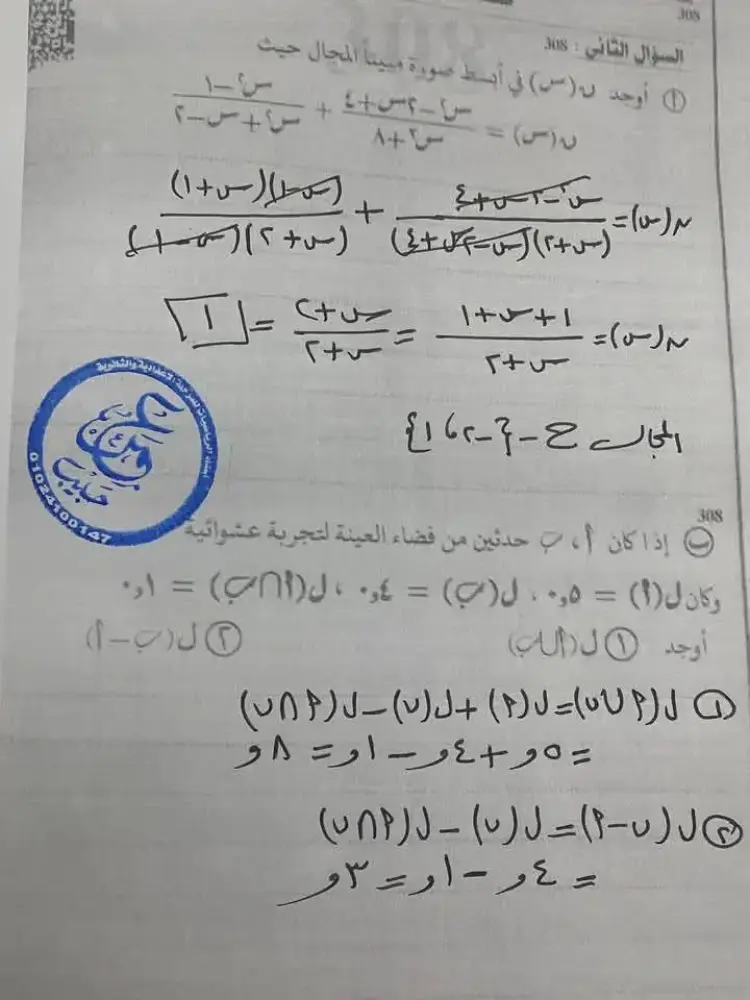 308
السؤال الثاني : 308
أ أوجد ن(س) في أبسط صورة مبيناً المجال حيث
ن(س) = (س٢ - ٢س + ٤)/(س٣ + ٨) + (س٢ - ١)/(س٢ + س - ٢)
ن(س) = (س٢ - ٢س + ٤)/((س + ٢)(س٢ - ٢س + ٤)) + ((س - ١)(س + ١))/((س + ٢)(س - ١))
ن(س) = (١ + س + ١)/(س + ٢) = (س + ٢)/(س + ٢) = ١
المجال ح - {-٢، ١}
308
ب إذا كان أ، ب حدثين من فضاء العينة لتجربة عشوائية
وكان ل(أ) = ٠,٥ ، ل(ب) = ٠,٤ ، ل(أ∩ب) = ٠,١
أوجد ١ ل(أ∪ب) ٢ ل(ب - أ)
١ ل(أ∪ب) = ل(أ) + ل(ب) - ل(أ∩ب)
= ,٥ + ,٤ - ,١ = ,٨
٢ ل(ب - أ) = ل(ب) - ل(أ∩ب)
= ,٤ - ,١ = ,٣
حبيب
01024100147